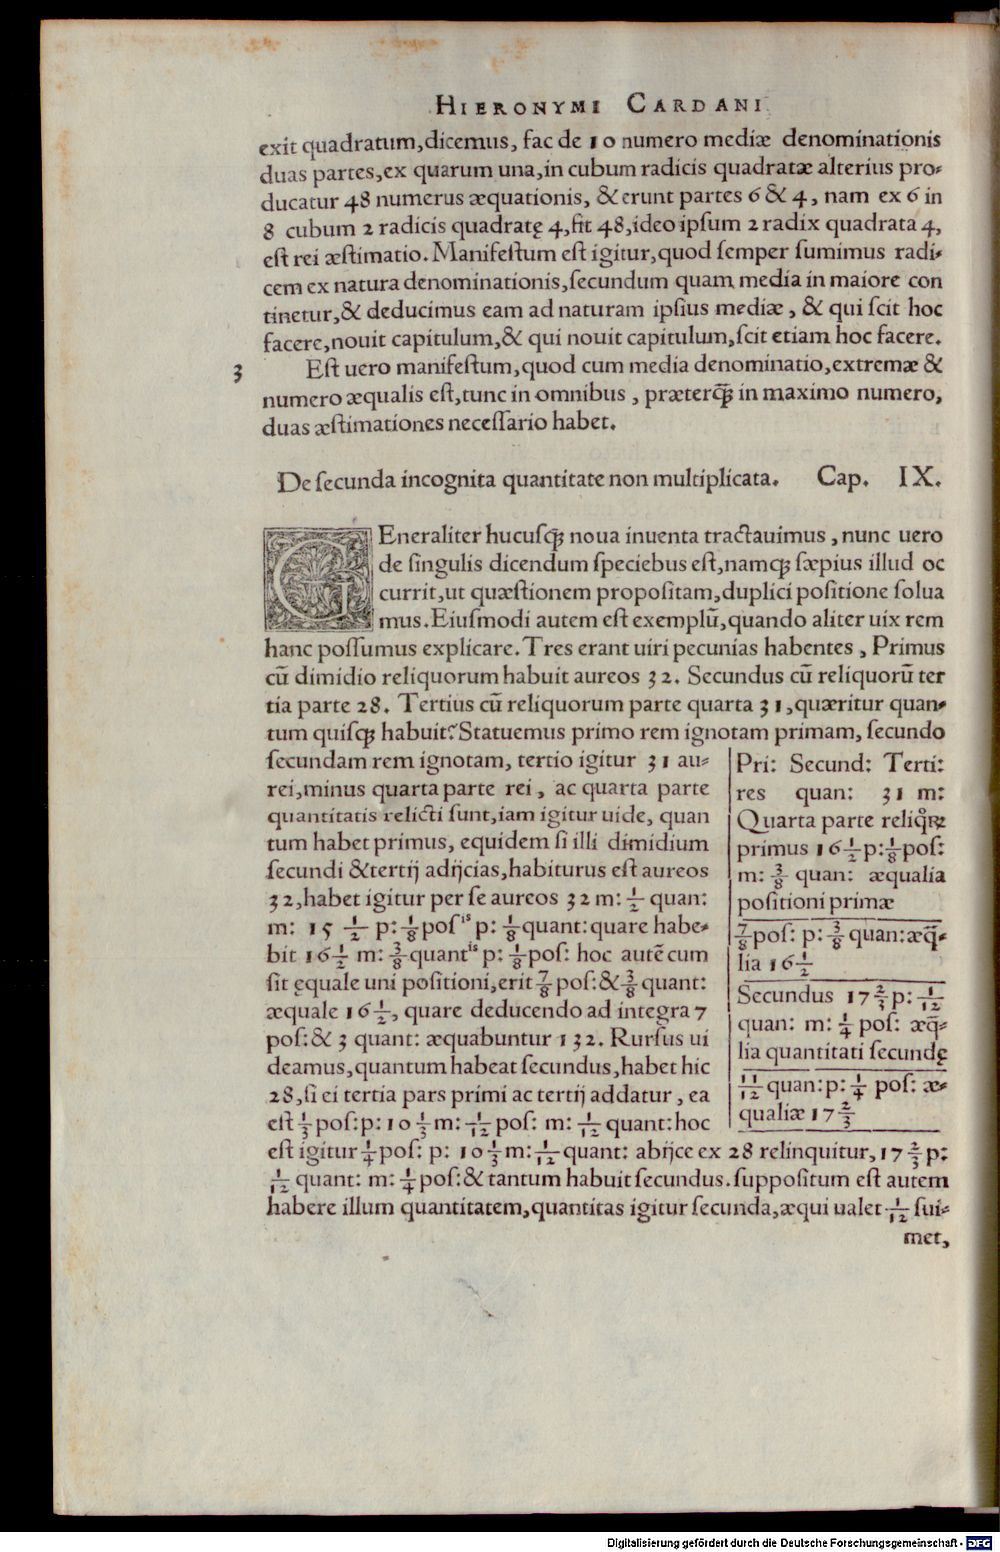 HIERONYMI CARDANI
exit quadratum, dicemus, fac de 10 numero mediæ denominationis
duas partes, ex quarum una, in cubum radicis quadratæ alterius pro⸗
ducatur 48 numerus æquationis, & erunt partes 6 & 4, nam ex 6 in
8 cubum 2 radicis quadratę 4, fit 48, ideo ipsum 2 radix quadrata 4,
est rei æstimatio. Manifestum est igitur, quod semper sumimus radi⸗
cem ex natura denominationis, secundum quam media in maiore con
tinetur, & deducimus eam ad naturam ipsius mediæ, & qui scit hoc
facere, nouit capitulum, & qui nouit capitulum, scit etiam hoc facere.
3 Est uero manifestum, quod cum media denominatio, extremæ &
numero æqualis est, tunc in omnibus, præterq̃ʒ in maximo numero,
duas æstimationes necessario habet.
De secunda incognita quantitate non multiplicata. Cap. IX.
GEneraliter hucusqʒ noua inuenta tractauimus, nunc uero
de singulis dicendum speciebus est, namqʒ sæpius illud oc
currit, ut quæstionem propositam, duplici positione solua
mus. Eiusmodi autem est exemplū, quando aliter uix rem
hanc possumus explicare. Tres erant uiri pecunias habentes, Primus
cū dimidio reliquorum habuit aureos 32. Secundus cū reliquorū ter
tia parte 28. Tertius cū reliquorum parte quarta 31, quæritur quan⸗
tum quisqʒ habuit? Statuemus primo rem ignotam primam, secundo
secundam rem ignotam, tertio igitur 31 au⸗
rei, minus quarta parte rei, ac quarta parte
quantitatis relicti sunt, iam igitur uide, quan
tum habet primus, equidem si illi dimidium
secundi & tertij adijcias, habiturus est aureos
32, habet igitur per se aureos 32 m: 1/2 quan:
m: 15 1/2 p: 1/8 posⁱˢ p: 1/8 quant: quare habe⸗
bit 16 1/2 m: 3/8 quantⁱˢ p: 1/8 pos: hoc autē cum
sit ęquale uni positioni, erit 7/8 pos: & 3/8 quant:
æquale 16 1/2, quare deducendo ad integra 7
pos: & 3 quant: æquabuntur 132. Rursus ui
deamus, quantum habeat secundus, habet hic
28, si ei tertia pars primi ac tertij addatur, ea
est 1/3 pos: p: 10 1/3 m: 1/12 pos: m: 1/12 quant: hoc
Pri: Secund: Terti:
res quan: 31 m:
Quarta parte reliq̃ꝝ
primus 16 1/2 p: 1/8 pos:
m: 3/8 quan: æqualia
positioni primæ
7/8 pos: p: 3/8 quan: æq̃⸗
lia 16 1/2
Secundus 17 2/3 p: 1/12
quan: m: 1/4 pos: æq̃⸗
lia quantitati secundę
11/12 quan: p: 1/4 pos: æ⸗
qualiæ 17 2/3
est igitur 1/4 pos: p: 10 1/3 m: 1/12 quant: abijce ex 28 relinquitur, 17 2/3 p:
1/12 quant: m: 1/4 pos: & tantum habuit secundus. suppositum est autem
habere illum quantitatem, quantitas igitur secunda, æqui ualet 1/12 sui⸗
met,
Digitalisierung gefördert durch die Deutsche Forschungsgemeinschaft - DFG